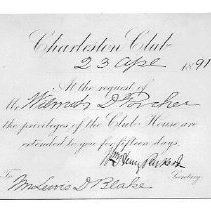 Charleston Club
23 Apl 1891
At the request of
Mr Wilmot D Porcher
the privileges of the Club House are
extended to you for fifteen days.
Secretary.
To
Mr Lewis D Blake